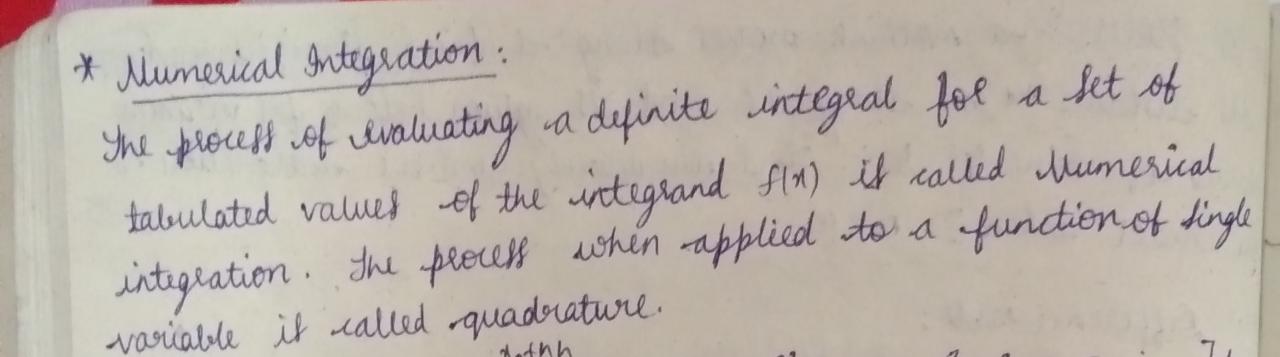 * Numerical Integration :
The process of evaluating a definite integral for a set of
tabulated values of the integrand f(x) is called Numerical
integration. The process when applied to a function of single
variable is called quadrature.